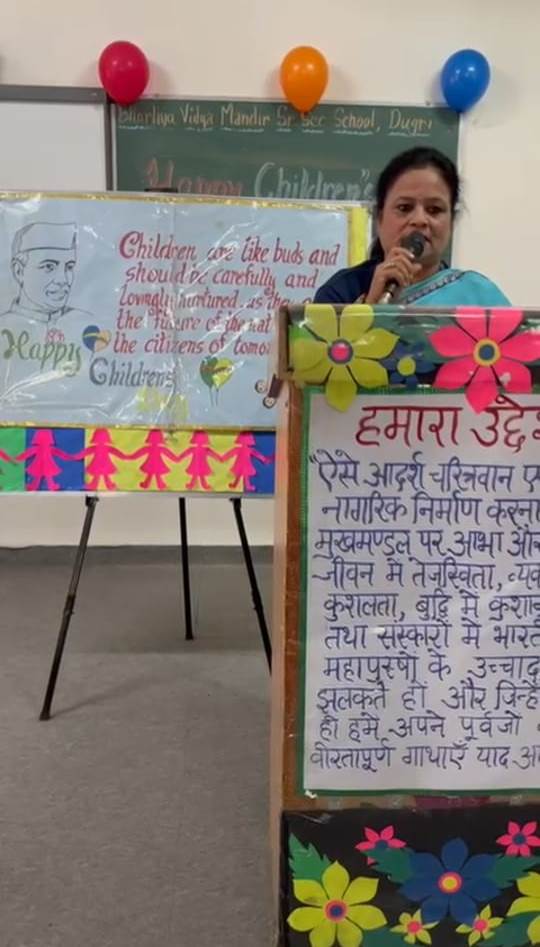 Bhartiya Vidya Mandir Sr. Sec School, Dugri
Happy Children's
Children are like buds and
should be carefully and
lovingly nurtured. as they
the future of the nat
the citizens of tomo
Happy
Children's
Day
हमारा उद्दे
"ऐसे आदर्श चरित्रवान ए
नागरिक निर्माण करना
मुखमण्डल पर आभा और
जीवन में तेजस्विता, व्यव
कुशलता, बुद्धि में कुशा
तथा संस्कारों में भारत
महापुरुषों के उच्चाद
झलकते हों और जिन्हें
ही हमें अपने पूर्वजों
वीरतापूर्ण गाथाएँ याद आ